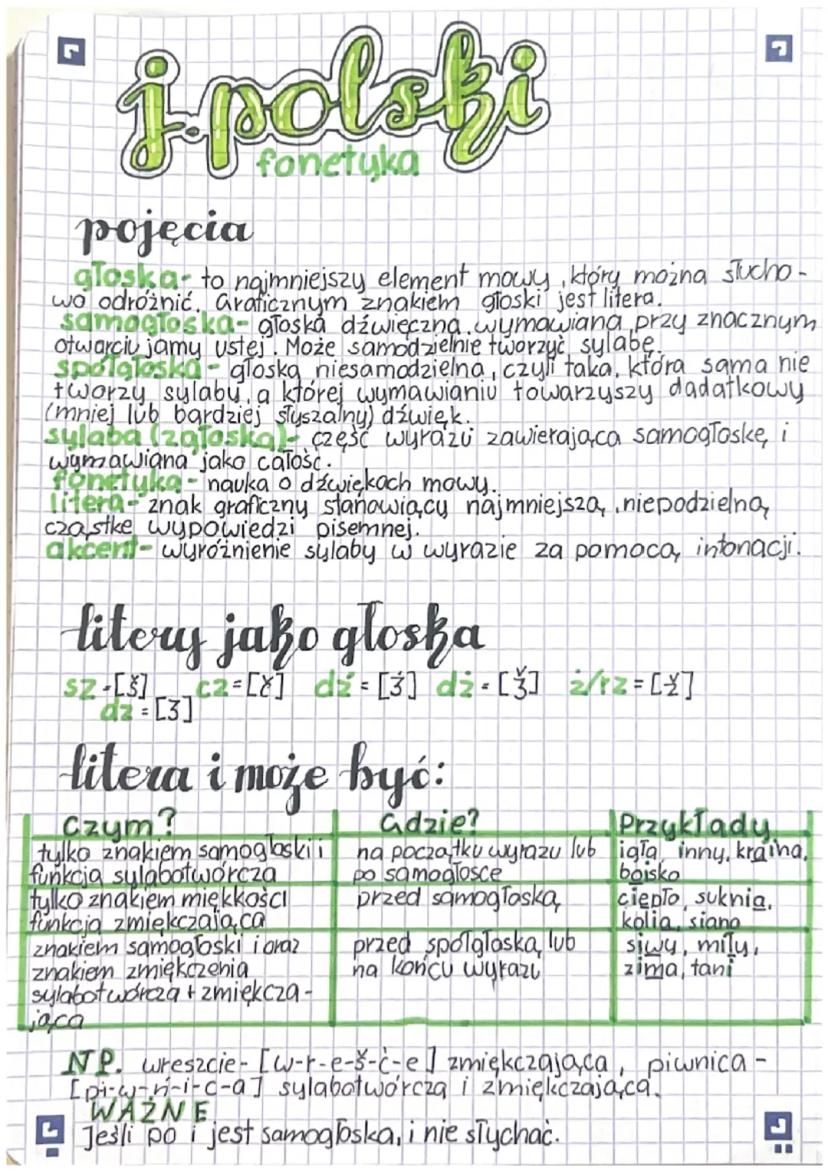 j. polski
fonetyka
pojęcia
głoska- to najmniejszy element mowy, który można słucho-
wo odróżnić. Graficznym znakiem głoski jest litera.
samogłoska- głoska dźwięczna wymawiana przy znacznym
otwarciu jamy ustej. Może samodzielnie tworzyć sylabę
spółgłoska- głoska niesamodzielna, czyli taka, która sama nie
tworzy sylaby, a której wymawianiu towarzyszy dadatkowy
(mniej lub bardziej słyszalny) dźwięk.
sylaba (zgłoska)- część wyrazu zawierająca samogłoskę i
wymawiana jako całość.
fonetyka- nauka o dźwiękach mowy.
litera- znak graficzny stanowiący najmniejszą, niepodzielną,
cząstkę wypowiedzi pisemnej.
akcent- wyróżnienie sylaby w wyrazie za pomocą intonacji.
litery jako głoska
sz=[š] cz=[č] dź=[ʒ́] dż=[ǯ] ż/rz=[ž]
dz=[ʒ]
litera i może być:
Czym? Gdzie? Przykłady
tylko znakiem samogłoski i na początku wyrazu lub igła, inny, kraina,
funkcja sylabotwórcza po samogłosce boisko
tylko znakiem miękkości przed samogłoską ciepło, suknia,
funkcja zmiękczająca kolia, siano
znakiem samogłoski i oraz przed spółgłoską lub siwy, miły,
znakiem zmiękczenia na końcu wyrazu zima, tani
sylabotwórcza + zmiękcza-
jąca
NP. wreszcie- [w-r-e-š-ć-e] zmiękczająca, piwnica-
[pi-w-ń-i-c-a] sylabotwórcza i zmiękczająca.
WAŻNE
Jeśli po i jest samogłoska, i nie słychać.